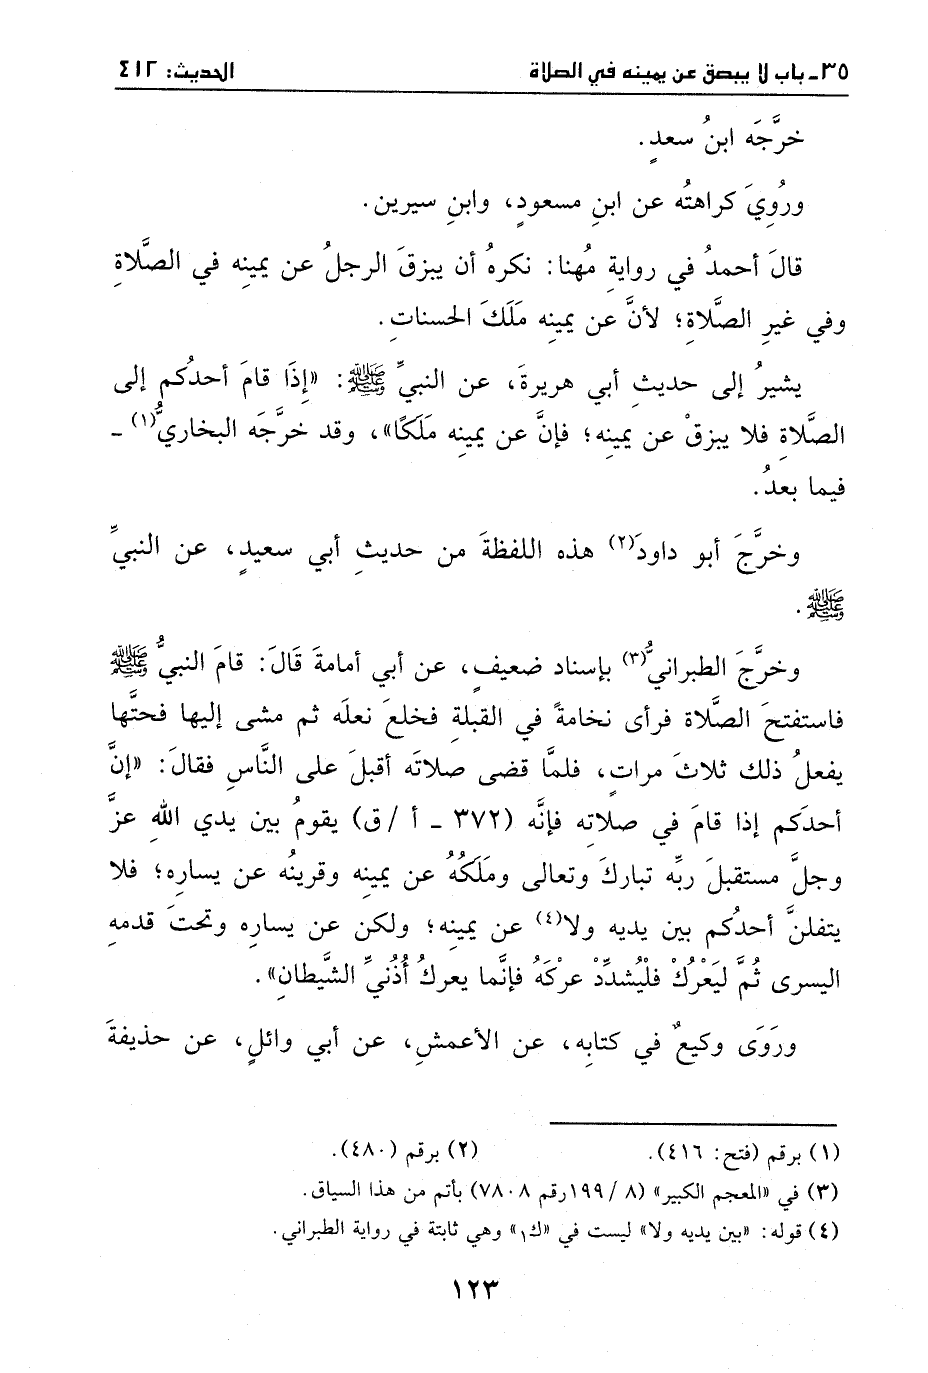 ٣٥ـ باب لا يبصق عن يمينه في الصلاة الحديث: ٤١٢
خرَّجَه ابنُ سعدٍ.
ورُوِيَ كراهتُه عن ابنِ مسعودٍ، وابنِ سيرين.
قالَ أحمدُ في روايةِ مُهنا: نكرهُ أن يبزقَ الرجلُ عن يمينِه في الصَّلاةِ
وفي غيرِ الصَّلاةِ؛ لأنَّ عن يمينِه مَلَكَ الحسناتِ.
يشيرُ إلى حديثِ أبي هريرةَ، عن النبيِّ ﷺ: «إِذَا قامَ أحدُكم إلى
الصَّلاةِ فلا يبزقْ عن يمينِه؛ فإنَّ عن يمينِه مَلَكًا»، وقد خرَّجَه البخاريُّ(١) ـ
فيما بعدُ.
وخرَّجَ أبو داودَ(٢) هذه اللفظةَ من حديثِ أبي سعيدٍ، عن النبيِّ
ﷺ.
وخرَّجَ الطبرانيُّ(٣) بإسناد ضعيفٍ، عن أبي أمامةَ قَالَ: قامَ النبيُّ ﷺ
فاستفتحَ الصَّلاةَ فرأى نخامةً في القبلةِ فخلعَ نعلَه ثم مشى إليها فحتَّها
يفعلُ ذلك ثلاثَ مراتٍ، فلمَّا قضى صلاتَه أقبلَ على النَّاسِ فقالَ: «إنَّ
أحدَكم إذا قامَ في صلاتِه فإنَّه (٣٧٢ ـ أ /ق) يقومُ بين يدي اللهِ عزَّ
وجلَّ مستقبلَ ربِّه تباركَ وتعالى ومَلَكُهُ عن يمينِه وقرينُه عن يسارِه؛ فلا
يتفلنَّ أحدُكم بين يديه ولا(٤) عن يمينِه؛ ولكن عن يسارِه وتحتَ قدمهِ
اليسرى ثُمَّ ليَعْرُكْ فلْيُشدِّدْ عرْكَهُ فإنَّما يعركُ أُذُنيِّ الشَّيطانِ».
ورَوَى وكيعٌ في كتابِه، عن الأعمشِ، عن أبي وائلٍ، عن حذيفةَ
(١) برقم (فتح: ٤١٦). (٢) برقم (٤٨٠).
(٣) في «المعجم الكبير» (٨ /١٩٩رقم ٧٨٠٨) بأتم من هذا السياق.
(٤) قوله: «بين يديه ولا» ليست في «ك١» وهي ثابتة في رواية الطبراني.
١٢٣